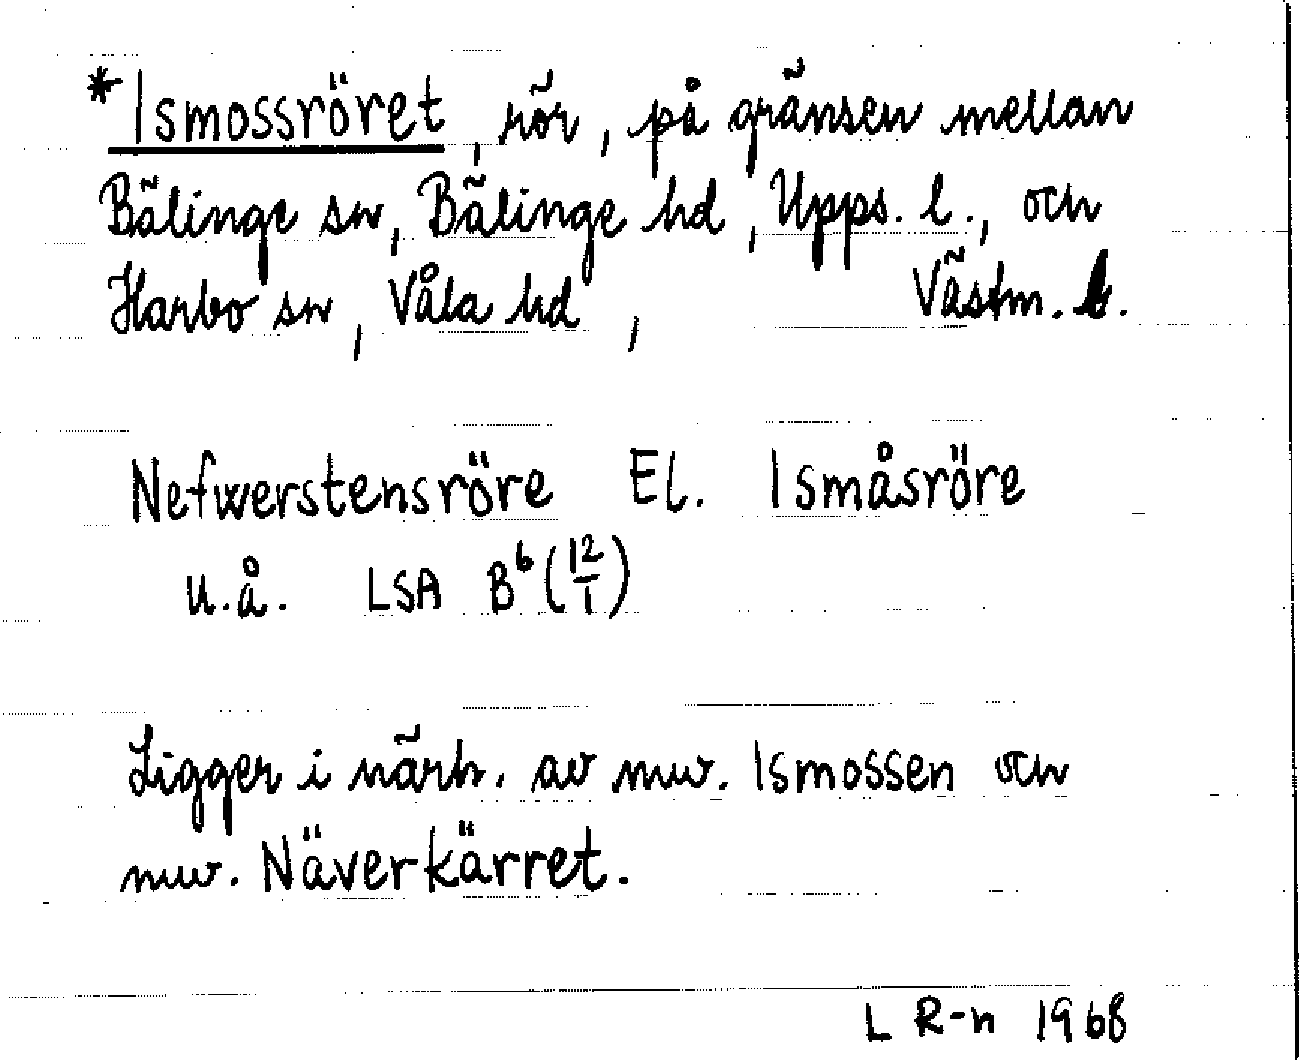 *Ismossröret, rör, på gränsen mellan
Bälinge sn, Bälinge hd, Upps. l., och
Harbo sn, Våla hd, Västm. l.
Nefwerstensröre El. Ismåsröre
u.å. LSA B⁶ (12/1)
Ligger i närh. av nuv. Ismossen och
nuv. Näverkärret.
L R-n 1968